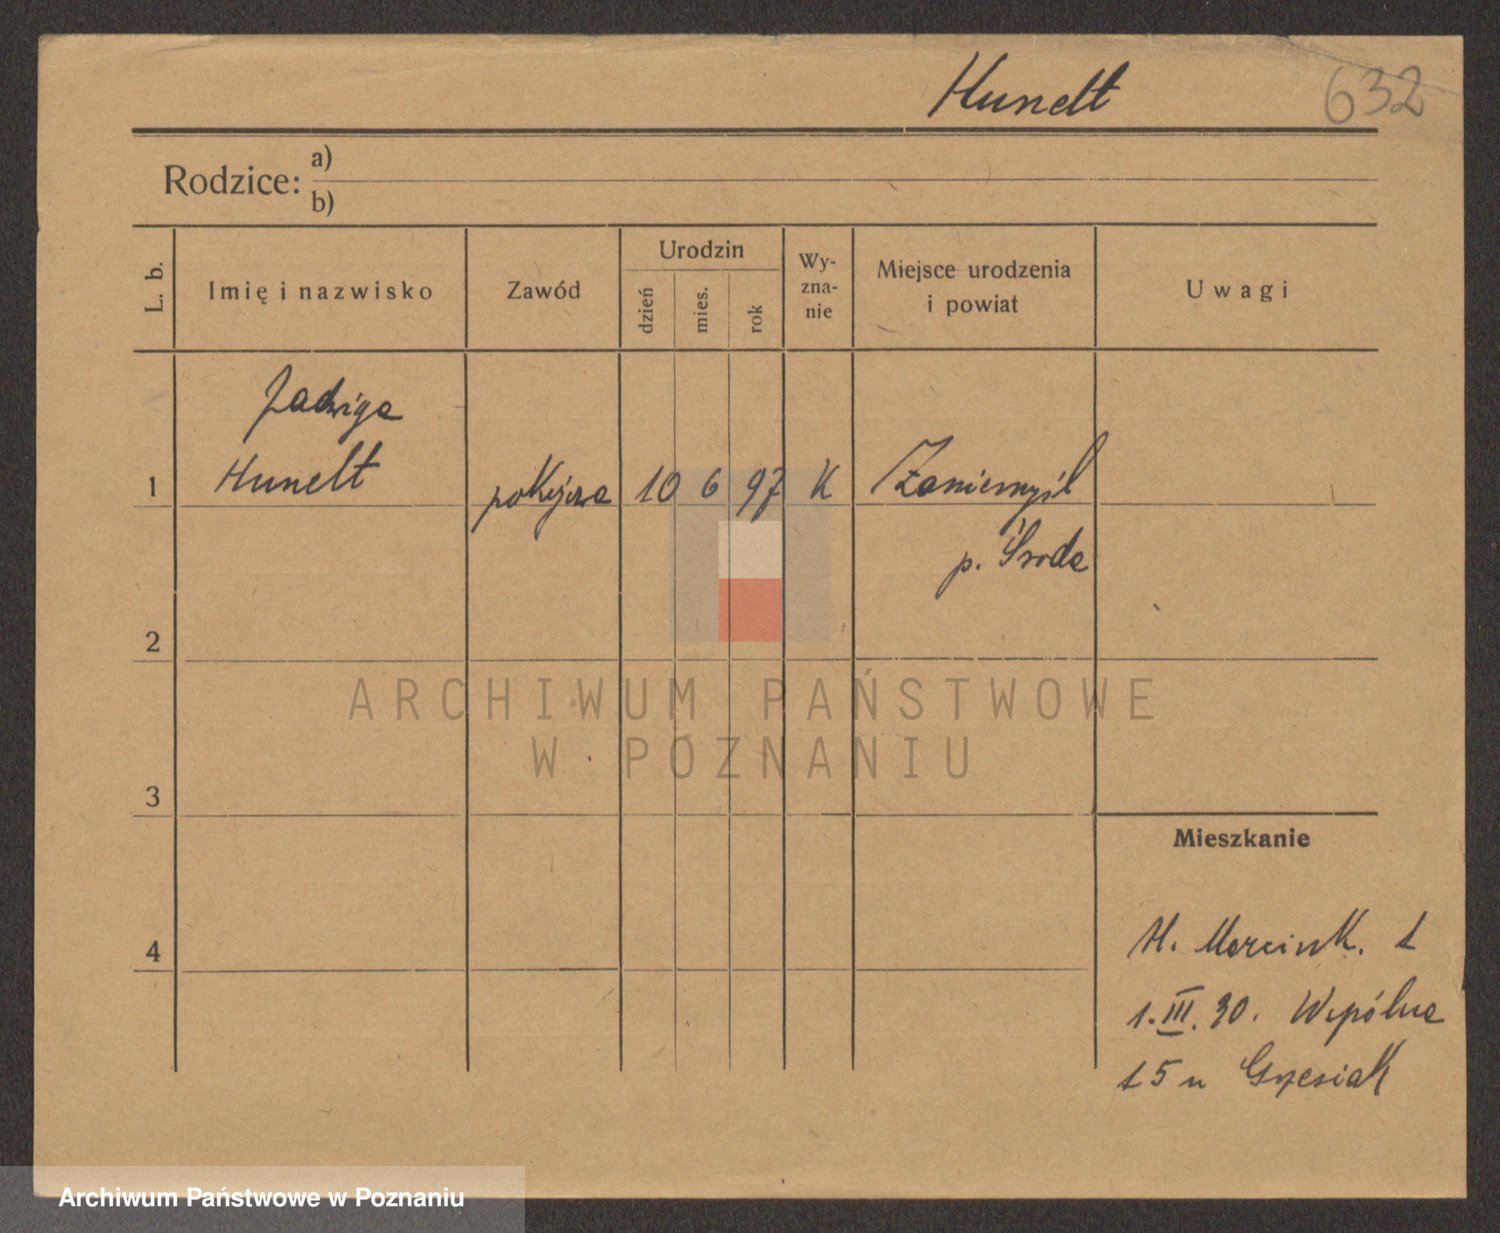 Hunelt 632
Rodzice: a)
b)
L. b. Imię i nazwisko Zawód Urodzin dzień mies. rok Wy-zna-nie Miejsce urodzenia i powiat Uwagi
Jadwiga
1 Hunelt pokojowa 10 6 97 K Zaniemyśl
p. Środa
2
ARCHIWUM PAŃSTWOWE
W POZNANIU
3
Mieszkanie
4 M. Marcink. 1
1.III.30. Wspólna
15 u Grzesiak
Archiwum Państwowe w Poznaniu